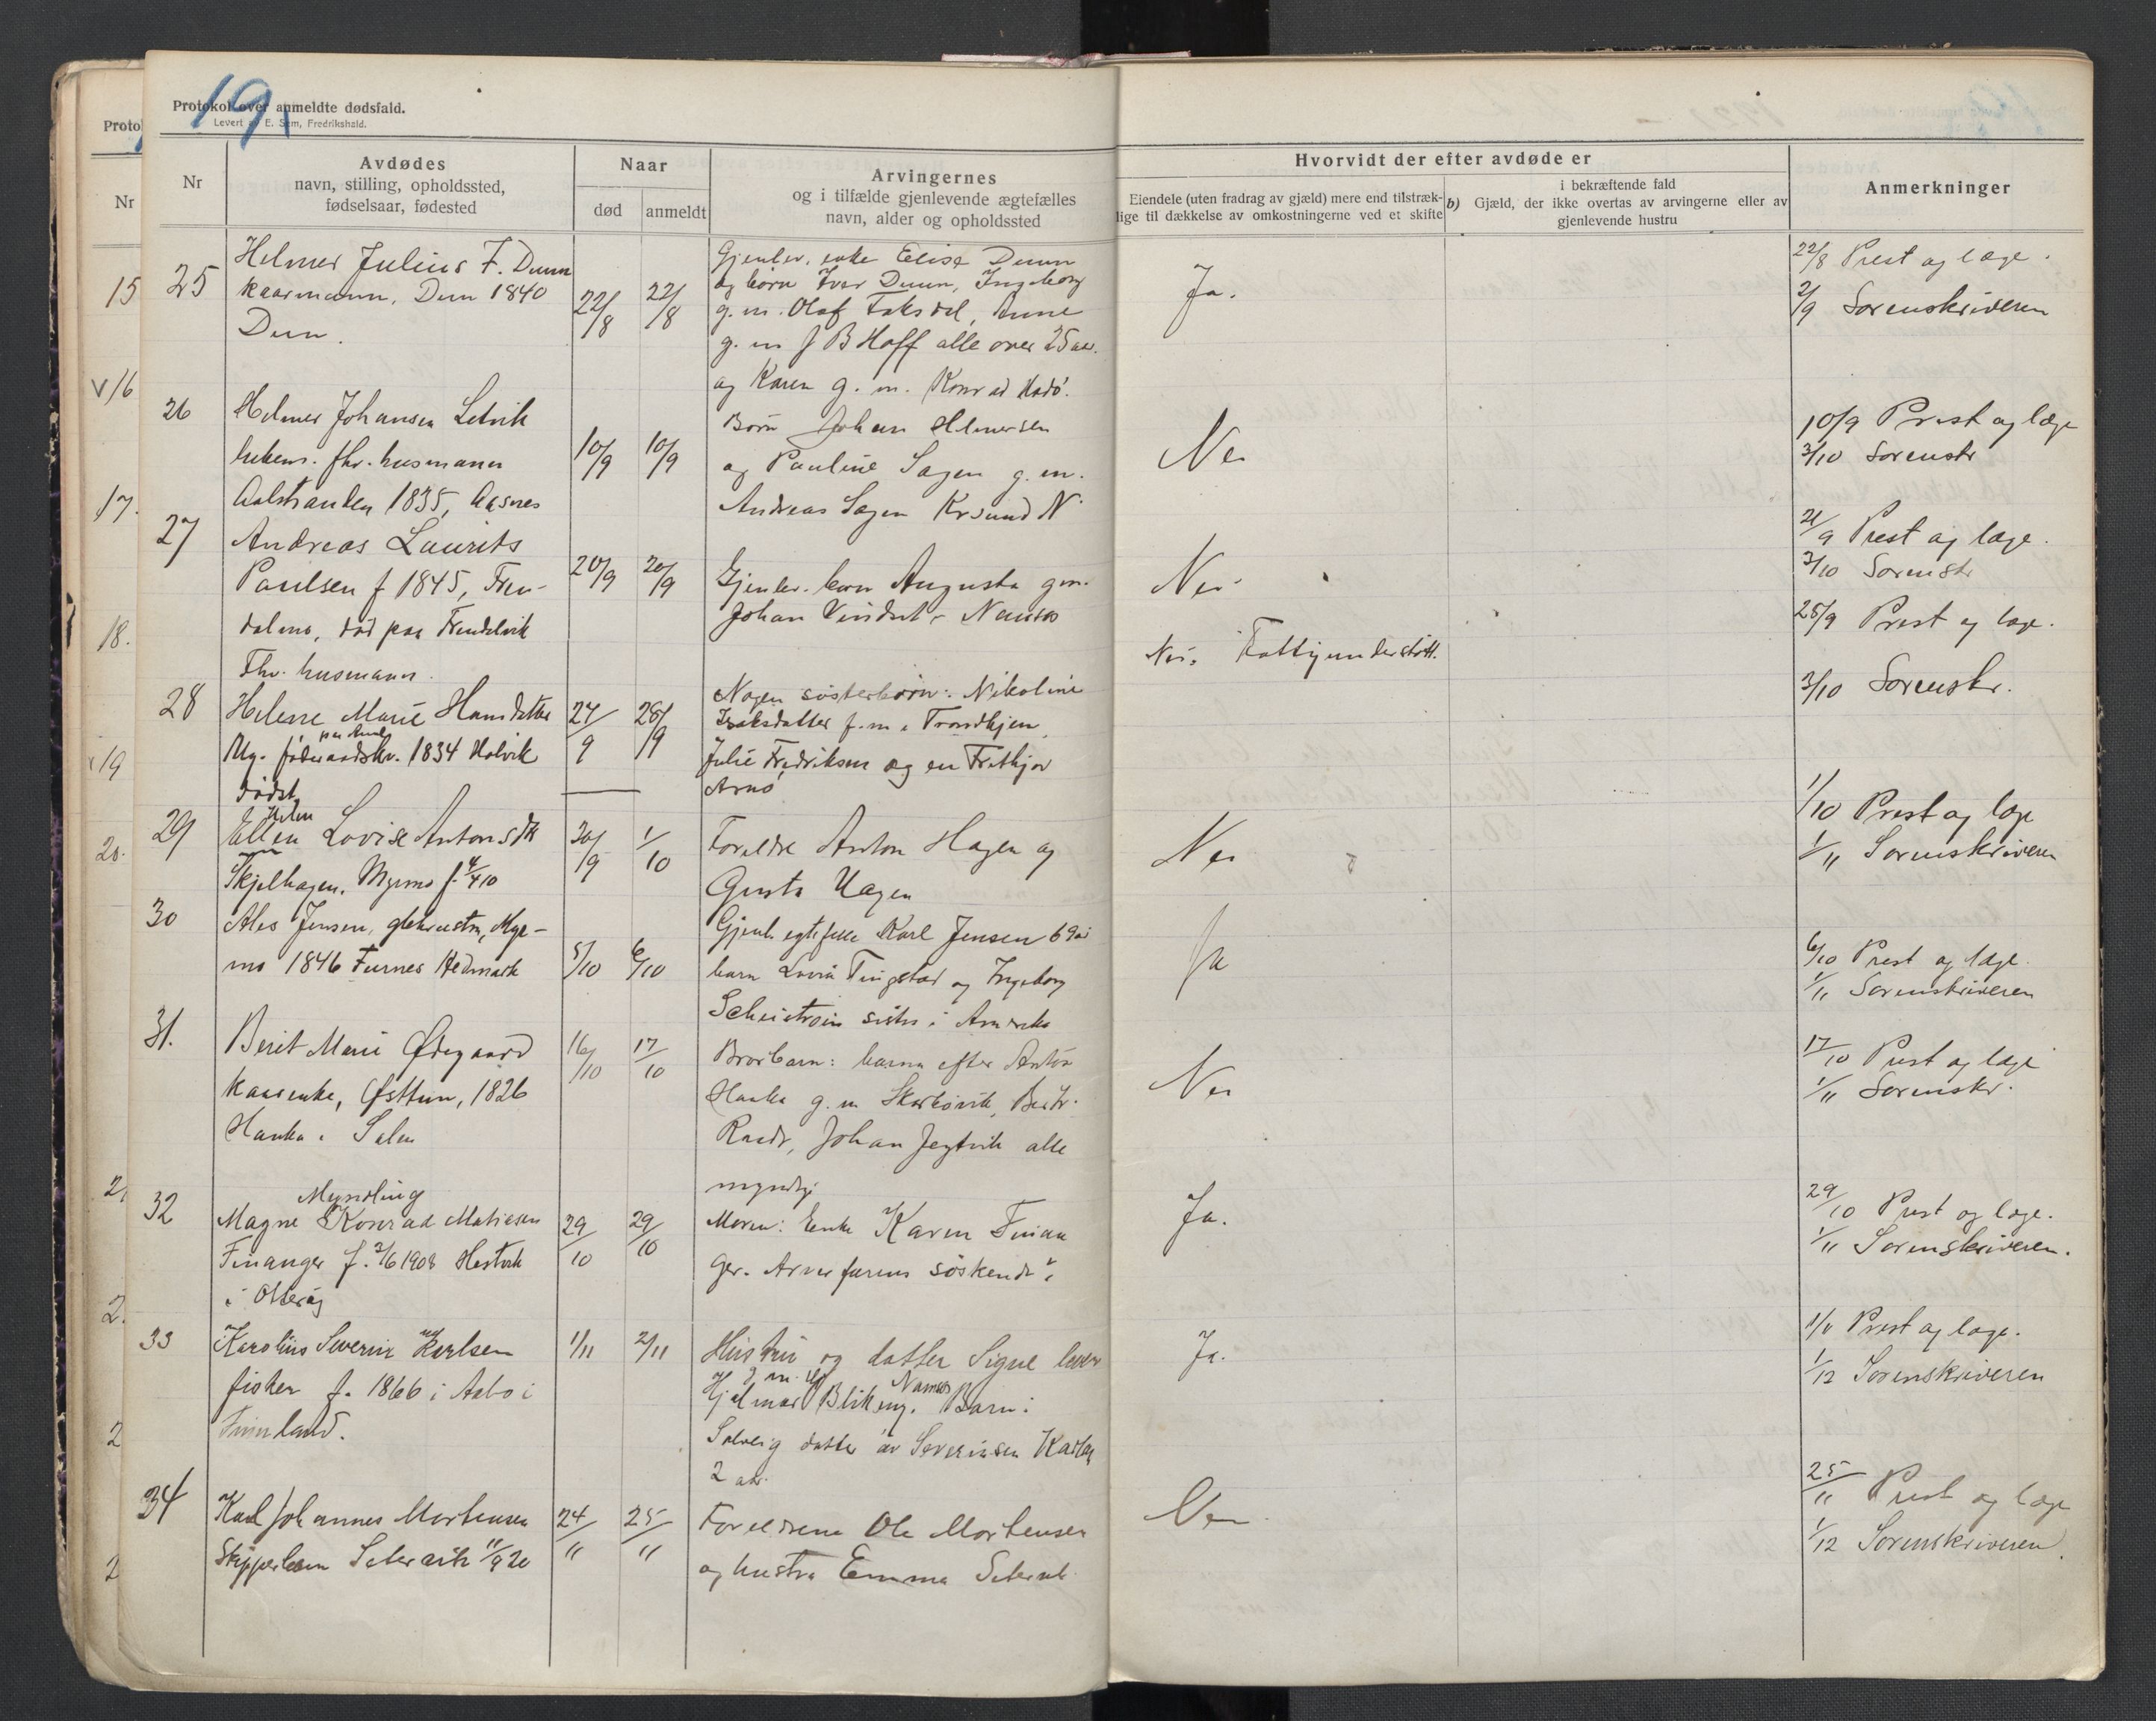 19
Protokol over anmeldte dødsfald.
Levert av E. Sem, Fredrikshald.
Proto
Nr
15
V 16
17.
18.
19
20.
2
2.
2
2
Nr
Avdødes
navn, stilling, opholdssted,
fødselsaar, fødested
Naar
død
anmeldt
Arvingernes
og i tilfælde gjenlevende ægtefælles
navn, alder og opholdssted
Hvorvidt der efter avdøde er
Eiendele (uten fradrag av gjæld) mere end tilstræk-
lige til dækkelse av omkostningerne ved et skifte
i bekræftende fald
b) Gjæld, der ikke overtas av arvingerne eller av
gjenlevende hustru
Anmerkninger
25
Helmer Julius F. Duun
kaarmann, Dun 1840
Dun.
22/8
22/8
Gjenlev. enke Elise Duun
og børn Ivar Duun, Ingeborg
g. m. Olaf Faksdel, Anne
g. m J B Hoff alle over 25 aar.
og Karen g. m. Konrad Hadø.
Ja.
22/8 Prest og læge.
2/9 Sorenskriveren
26
Helmer Johansen Letvik
fhv. husmann
Aalstranden 1835, Aasnes
10/9
10/9
Børn Johan Helmersen
og Pauline Sagen g. m.
Andreas Sagen Krsund N
Nei
10/9 Prest og læge
3/10 Sorenskr
27
Andreas Laurits
Paulsen f 1845, Fren-
dalmo, død paa Frendelvik
Fhv. husmann.
20/9
20/9
Gjenlev. barn Augusta gm.
Johan Vindset - Namsos
Nei
21/9 Prest og læge.
3/10 Sorenskr
28
Helene Marie Hansdatter
Ug. føderaadskv. 1834 Holvik
dødst
27/9
28/9
Nogen søsterbørn: Nikoline
Isaksdatter f. m. Trondhjem,
Julie Fredriksen og en Frithjov
Arnø
Nei. Fattigunderstøtt.
28/9 Prest og læge.
3/10 Sorenskr.
29
Helen
Ellen Lovise Antonsdtr
Skjelhagen. Myrmo f. 4/4 10
30/9
1/10
Foreldre Anton Hagen og
Gusta Hagen
Nei
1/10 Prest og læge
1/11 Sorenskriveren
30
Ales Jensen, gkhustru, Myr-
mo 1846 Furnes Hedmark
5/10
6/10
Gjenl. egtefelle Karl Jensen 69 år
barn Lovise Tingstad og Ingeborg
søster i Amerika
Ja
6/10 Prest og læge.
1/11 Sorenskriveren
31.
Berit Marie Ødegaard
kaarenke, Østtun, 1826
Hanka i Salen
16/10
17/10
Brorbarn: barna efter Anton
Hanka g. m
Johan Jegtvik alle
myndige
Nei
17/10 Prest og læge
1/11 Sorenskr.
32
Myndling
Magne Konrad Matiesen
Finanger f. 2/6 1908 Hestvik
i Otterøy
29/10
29/10
Moren: Enke Karen Finan
ger. Arver farens søskende?
Ja.
29/10 Prest og læge.
1/11 Sorenskriveren.
33
Karolius Severin Karlsen
fisker f. 1866 i Aabo i
Finnland.
1/11
2/11
Hustru og datter Signe lever
g. m.
Hjalmar Blikeng. Namsos Barn:
Solveig datter av Severinsen Karlsen
2 aar.
Ja.
1/11 Prest og læge.
1/12 Sorenskriveren
34
Karl Johannes Mortensen
Skipperbarn Setervik 11/9 20
24/11
25/11
Foreldrene Ole Mortensen
og hustru Emma Setervik
Nei
25/11 Prest og læge
1/12 Sorenskriveren.